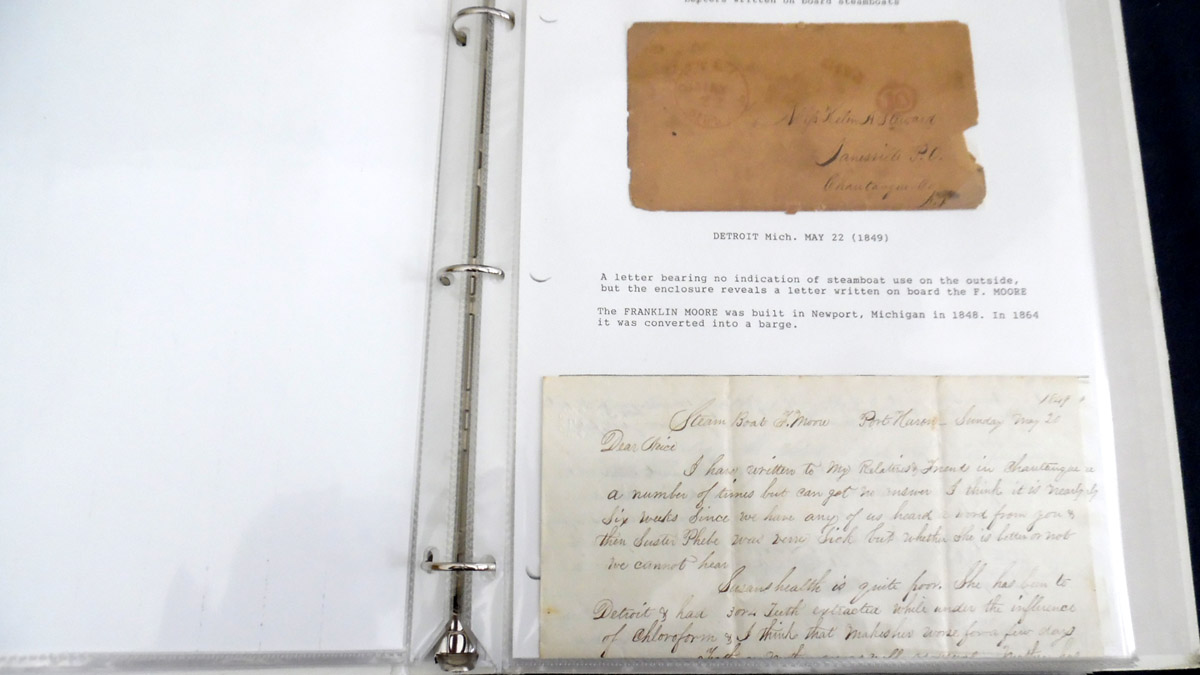 Letters written on board steamboats
10
Miss Helen A Steward
Janesville P.O.
Chautauque Co
N.Y
DETROIT Mich. MAY 22 (1849)
A letter bearing no indication of steamboat use on the outside,
but the enclosure reveals a letter written on board the F. MOORE
The FRANKLIN MOORE was built in Newport, Michigan in 1848. In 1864
it was converted into a barge.
1849
Steam Boat F. Moore Port Huron Sunday May 20
Dear Neice
I have written to My Relatives & Friend in Chautauque
a number of times but can get no answer I think it is nearly
Six weeks Since we have any of us heard a word from you &
then Sister Phebe was verry Sick but whether she is better or not
we cannot hear
Susans health is quite poor. She has been to
Detroit & had 3 or Teeth extracted while under the influence
of Chloroform & I think that makes her worse for a few days